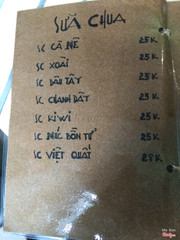 SỮA CHUA
SC CÀ NÉ 25K
SC XOÀI 25K
SC DÂU TÂY 25K
SC CHANH DÂY 25K
SC KIWI 25K
SC PHÚC BỒN TỬ 25K
SC VIỆT QUẤT 25K